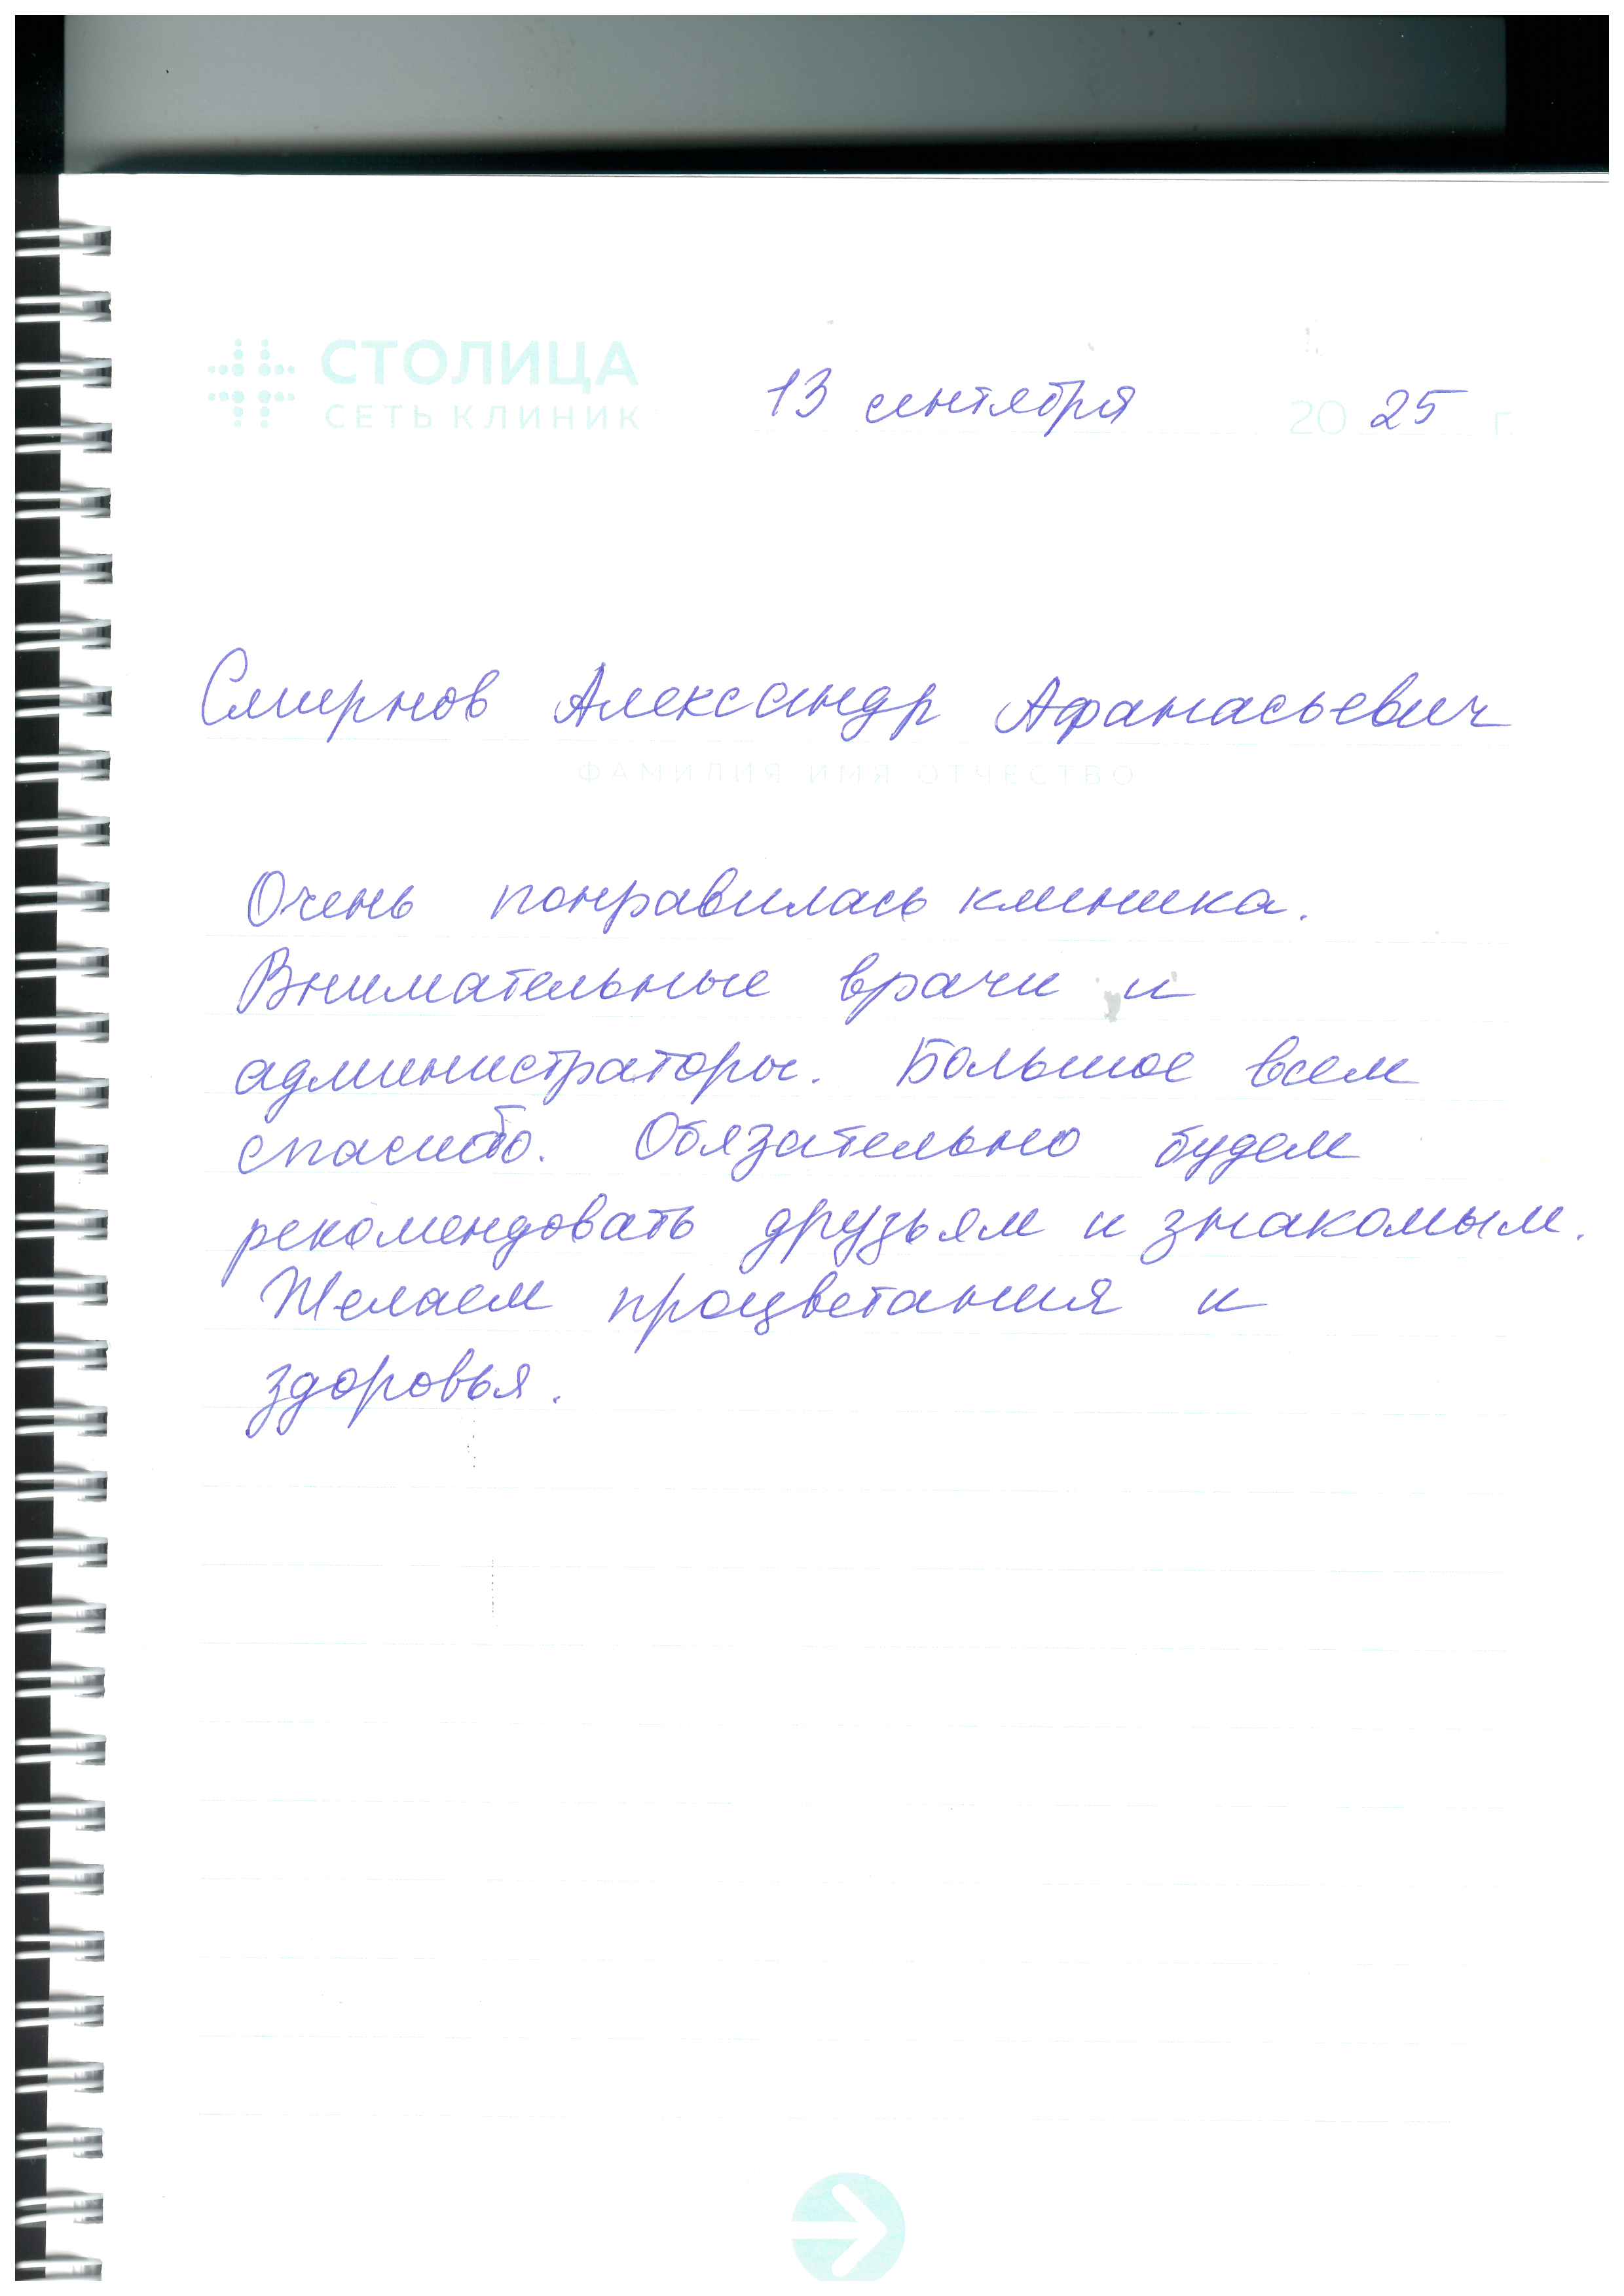 СТОЛИЦА
СЕТЬ КЛИНИК
13 сентября 2025 г.
Смирнов Александр Афанасьевич
ФАМИЛИЯ ИМЯ ОТЧЕСТВО
Очень понравилась клиника.
Внимательные врачи и
администраторы. Большое всем
спасибо. Обязательно будем
рекомендовать друзьям и знакомым.
Желаем процветания и
здоровья.